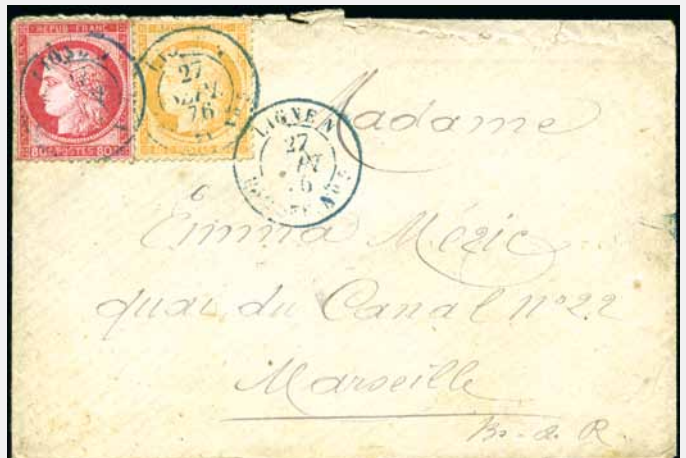 REPUB FRANC
80 POSTES 80
27
76
LIGNE N
27
Madame
Emma Méric
quai du Canal n° 22
Marseille
B. d. R.